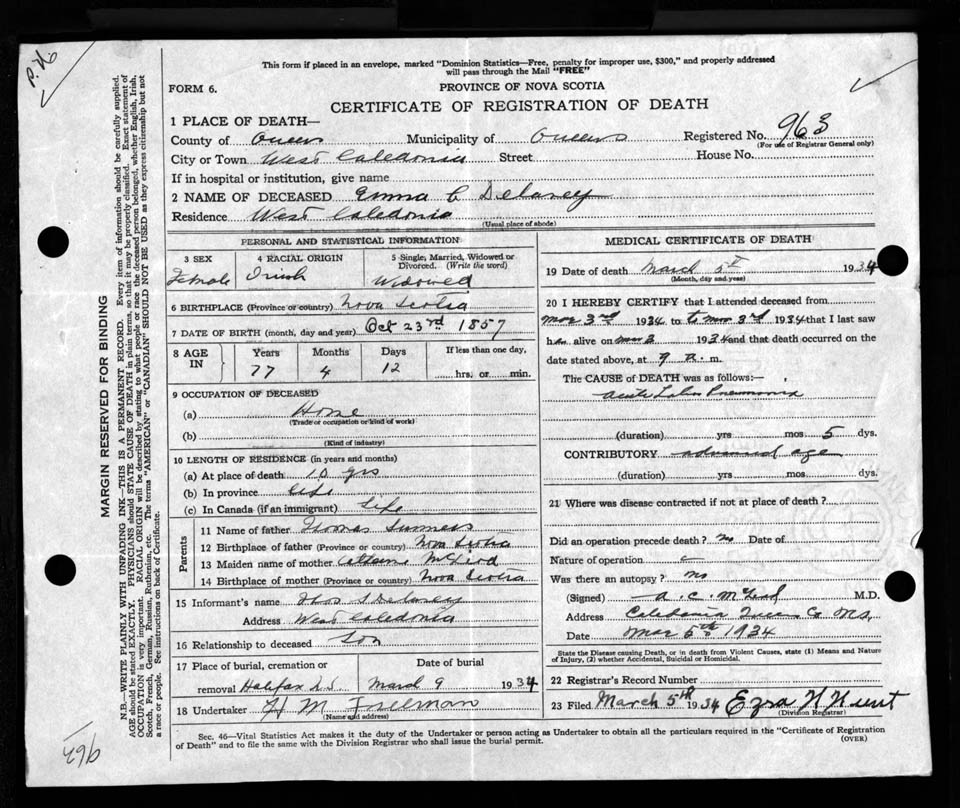 This form if placed in an envelope, marked "Dominion Statistics—Free, penalty for improper use, $300," and properly addressed
will pass through the Mail "FREE"
FORM 6.
PROVINCE OF NOVA SCOTIA
CERTIFICATE OF REGISTRATION OF DEATH
1 PLACE OF DEATH—
County of Queens Municipality of Queens Registered No. 963
(For use of Registrar General only)
City or Town West Caledonia Street House No.
If in hospital or institution, give name
2 NAME OF DECEASED Emma C Delaney
Residence West Caledonia
(Usual place of abode)
PERSONAL AND STATISTICAL INFORMATION
3 SEX 4 RACIAL ORIGIN 5 Single, Married, Widowed or
Divorced. (Write the word)
Female Irish Widowed
6 BIRTHPLACE (Province or country) Nova Scotia
7 DATE OF BIRTH (month, day and year) Oct 23rd 1857
8 AGE IN Years Months Days If less than one day,
77 4 12 hrs. or min.
9 OCCUPATION OF DECEASED
(a) Home
(Trade or occupation or kind of work)
(b)
(Kind of industry)
10 LENGTH OF RESIDENCE (in years and months)
(a) At place of death 10 yrs
(b) In province life
(c) In Canada (if an immigrant) life
Parents
11 Name of father Thomas
12 Birthplace of father (Province or country) Nova Scotia
13 Maiden name of mother Catherine McLeod
14 Birthplace of mother (Province or country) Nova Scotia
15 Informant's name Thos Delaney
Address West Caledonia
16 Relationship to deceased Son
17 Place of burial, cremation or Date of burial
removal Halifax N.S March 9 1934
18 Undertaker H M Freeman
(Name and address)
MEDICAL CERTIFICATE OF DEATH
19 Date of death March 5th 1934
(Month, day and year)
20 I HEREBY CERTIFY that I attended deceased from
Mar 3rd 1934 to Mar 3rd 1934 that I last saw
her alive on Mar 3 1934 and that death occurred on the
date stated above, at 9 a. m.
The CAUSE of DEATH was as follows:—
Acute Lobar Pneumonia
(duration) yrs mos 5 dys.
CONTRIBUTORY advanced age
(duration) yrs mos. dys.
21 Where was disease contracted if not at place of death?
Did an operation precede death? No Date of
Nature of operation
Was there an autopsy? No
(Signed) A. C. McLeod M.D.
Address Caledonia Queens Co N.S.
Date Mar 5th 1934
State the Disease causing Death, or in death from Violent Causes, state (1) Means and Nature
of Injury, (2) whether Accidental, Suicidal or Homicidal.
22 Registrar's Record Number
23 Filed March 5th 1934 Ezra N Hunt
(Division Registrar)
Sec. 46—Vital Statistics Act makes it the duty of the Undertaker or person acting as Undertaker to obtain all the particulars required in the "Certificate of Registration
of Death" and to file the same with the Division Registrar who shall issue the burial permit.
(OVER)
MARGIN RESERVED FOR BINDING
N.B.—WRITE PLAINLY WITH UNFADING INK—THIS IS A PERMANENT RECORD. Every item of information should be carefully supplied.
AGE should be stated EXACTLY. PHYSICIANS should STATE CAUSE OF DEATH in plain terms, so that it may be properly classified. Exact statement of
OCCUPATION is very important. RACIAL ORIGIN will be described by stating to what people or race the deceased person belonged, whether English, Irish,
Scotch, French, German, Russian, Ruthenian, etc. The terms "AMERICAN" or "CANADIAN" SHOULD NOT BE USED as they express citizenship but not
a race or people. See instructions on back of Certificate.
963